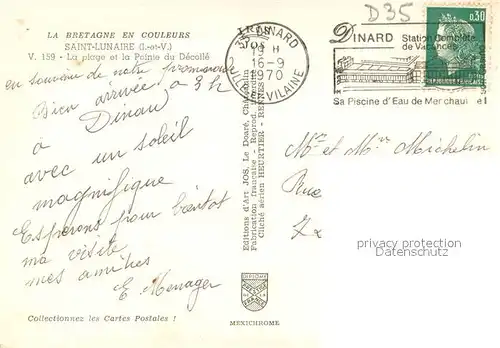 LA BRETAGNE EN COULEURS
SAINT-LUNAIRE (I.-et-V.)
V. 159 - La plage et la Pointe du Décollé
en souvenir de notre promenade
Bien arrivée à 3h
à Dinan
avec un soleil
magnifique
Esperons pour bientot
ma visite
mes amities
E. Menager
Collectionnez les Cartes Postales !
Editions d'Art JOS. Le Doaré, Châteaulin
Fabrication française - Reprod. Interdite
Cliché aérien HEURTIER - RENNES
MEXICHROME
35 DINARD
19 H
16-9
1970
ILLE-ET-VILAINE
D35
DINARD Station Complète
de Vacances
Sa Piscine d'Eau de Mer chauffée !
0,30
Me et Mr Michelin
Rue
privacy protection